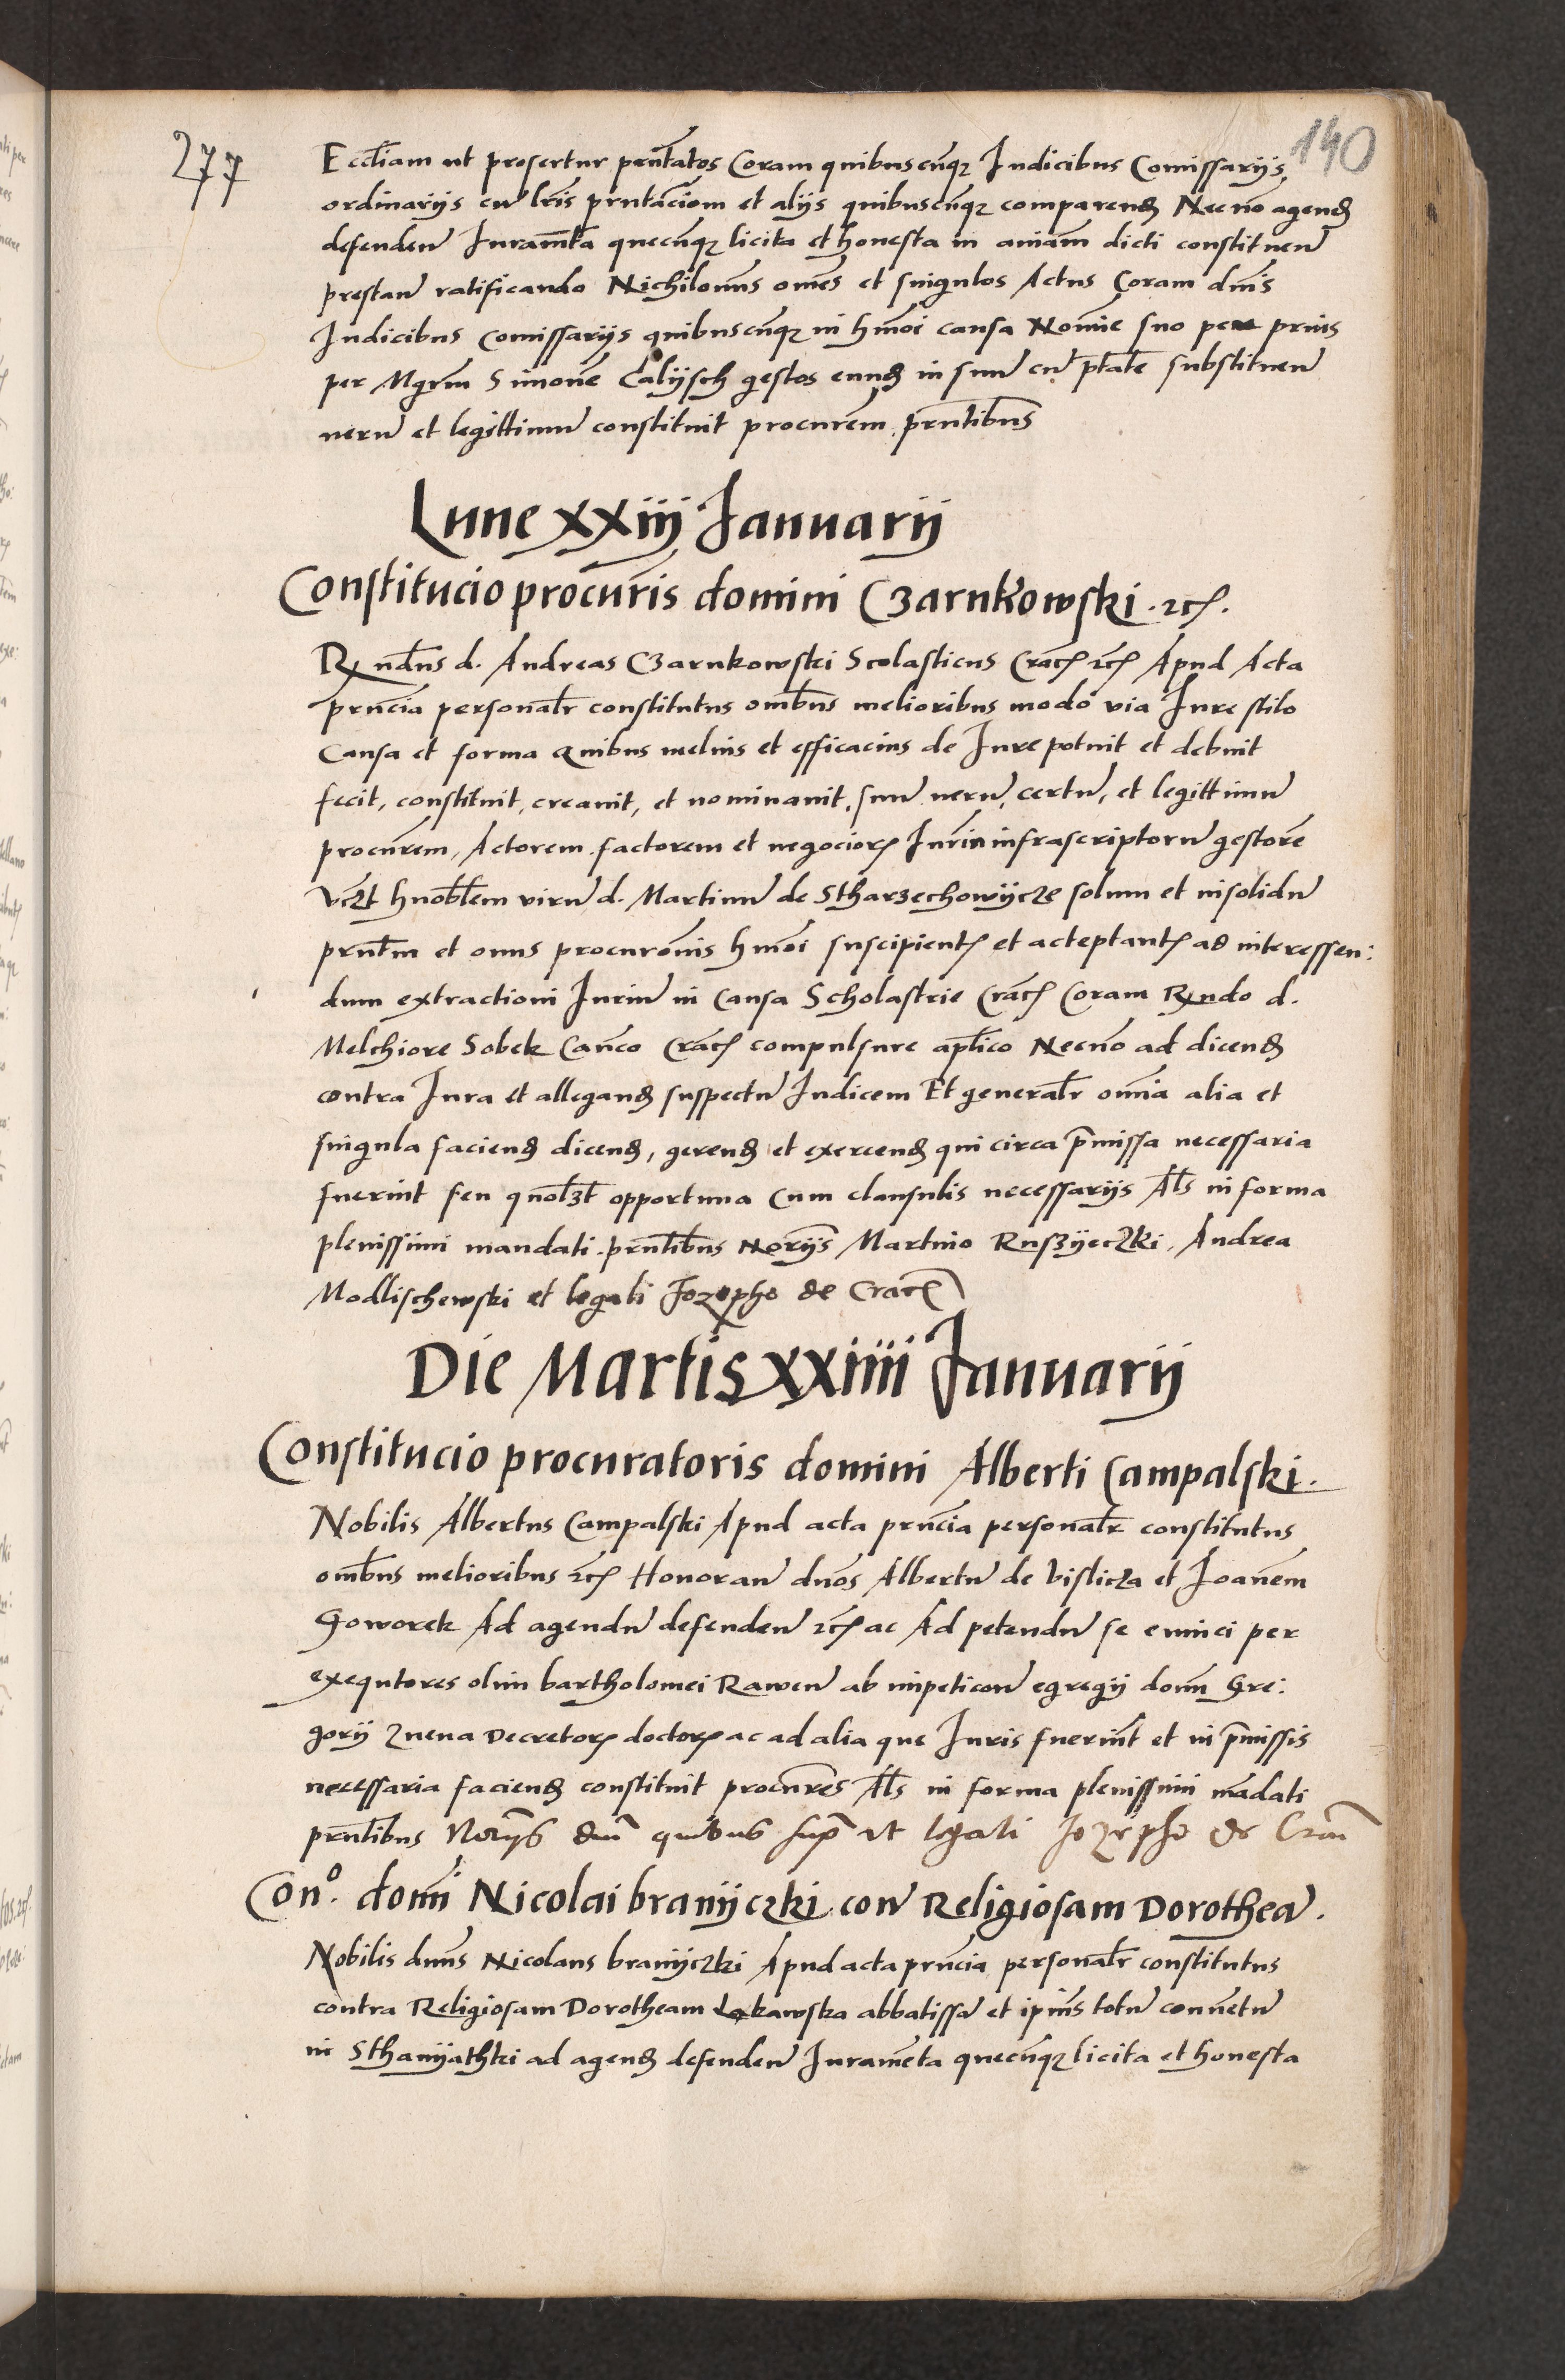 277
140
Eccl̄iam ut profertur pn̄tatos Coram quibuscūqꝫ Iudicibus Comissarijs
ordinarijs cū lr̄is pn̄tacionī et alijs quibuscūqꝫ comparend Necnō agend
defendeñ Iuramēta quecūqꝫ licita et honesta in aīam dicti constitueñ
prestañ ratificando Nichilomīus omēs et singulos Actus Coram dn̄is
Iudicibus Comissarijs quibuscūqꝫ in hm̄oi causa Nomīe suo prius
per Mgr̄m Simonē Calijsch gestos eund in suū cū ptātē substitueñ
verū et legittimū constituit procur̄em pn̄tibus
Lune xxiij Ianuarij
Constitucio procur̄is domini Czarnkowski. ꝛc̄.
Rx̄ndus d. Andreas Czarnkowski Scolasticus Crac̄ ꝛc̄ Apud Acta
pn̄cia personal̄r constitutus omībus melioribus modo via Iure stilo
Causa et forma Quibus melius et efficacius de Iure potuit et debuit
fecit, constituit, creauit, et nominauit, suū verū, certū, et legittimū
procur̄em, Actorem factorem et negocioꝝ infrascriptorū gestorē
vcꝫt hnobilem virū d. Martinū de Stharzechowijcze solum et insolidū
pn̄tm et onus procurōnis hm̄oi suscipient̄ et acteptant̄ ad interessen:
dum extractioni Iuriū in Causa Scholastrie Crac̄ Coram Rx̄ndo d.
Melchiore Sobek Cañco Crac̄ compulsore aplīco Necnō ad dicend
contra Iura et allegand suspectū Iudicem Et general̄r omīa alia et
singula faciend dicend, gerend et exercend qui circa p̄missa necessaria
fuerint seu quolꝫt opportuna Cum clausulis necessarijs Al̄s in forma
plenissimi mandati pn̄tibus Norijs Martino Ruszijeczki, Andrea
Modlischewski et legali Jozepho de Crac̄
Die Martis xxiiij Ianuarij
Constitucio procuratoris domini Alberti Campalski.
Nobilis Albertus Campalski Apud acta pn̄cia personal̄r constitutus
omībus melioribus ꝛc̄ Honorañ dnōs Albertū de vislicza et Ioañem
Goworek Ad agendū defendeñ ꝛc̄ ac Ad petendū se euinci per
exequtores olim bartholomei Raweñ ab impeticōn egregij domī Gre:
gorij Znena Decretoꝝ doctoꝝ ac ad alia que Iuris fuerint et in p̄missis
necessaria faciend constituit procur̄es Al̄s in forma plenissimi mādati
pn̄tibus Norijs quibus sup̄ et legali Jozepho de Crac̄
Conº. domī Nicolai branijczki con̄ Religiosam Dorotheā.
Nobilis dnūs Nicolaus branijczki Apud acta pn̄cia personal̄r constitutus
contra Religiosam Dorotheam Lakawska abbatissā et ipīus totū conuetū
in Sthanijathki ad agend defendeñ Iurameta quecūqꝫ licita et honesta